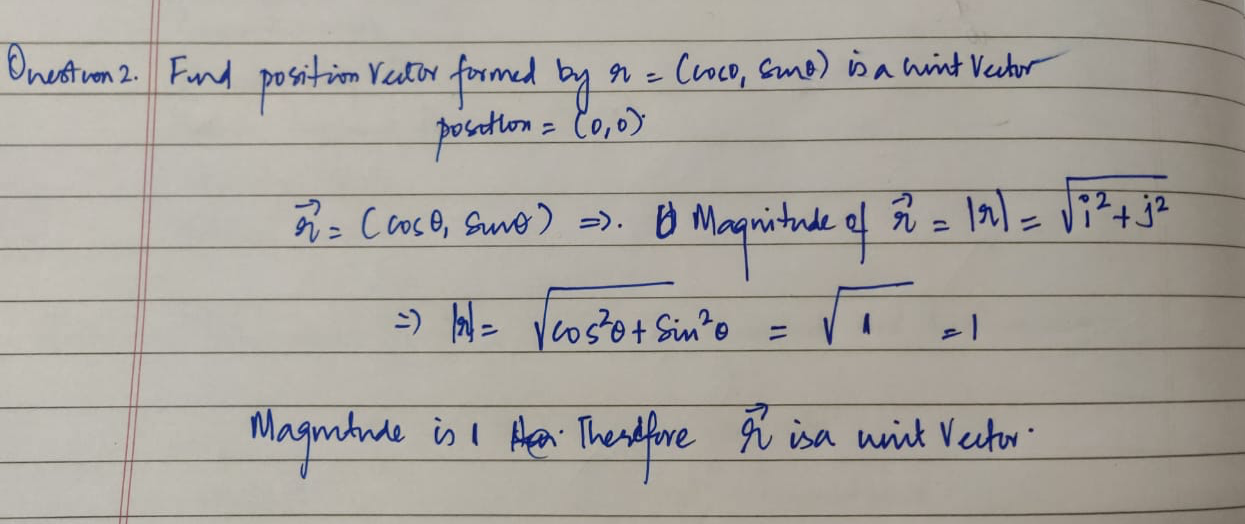 Question 2. Find position Vector formed by r = (cosθ, sinθ) is a unit Vector
position = (0,0).
r⃗ = (cosθ, sinθ) ⇒. Magnitude of r⃗ = |r| = √i²+j²
⇒ |r| = √cos²θ + Sin²θ = √1 = 1
Magnitude is 1 Therefore r⃗ is a unit Vector.